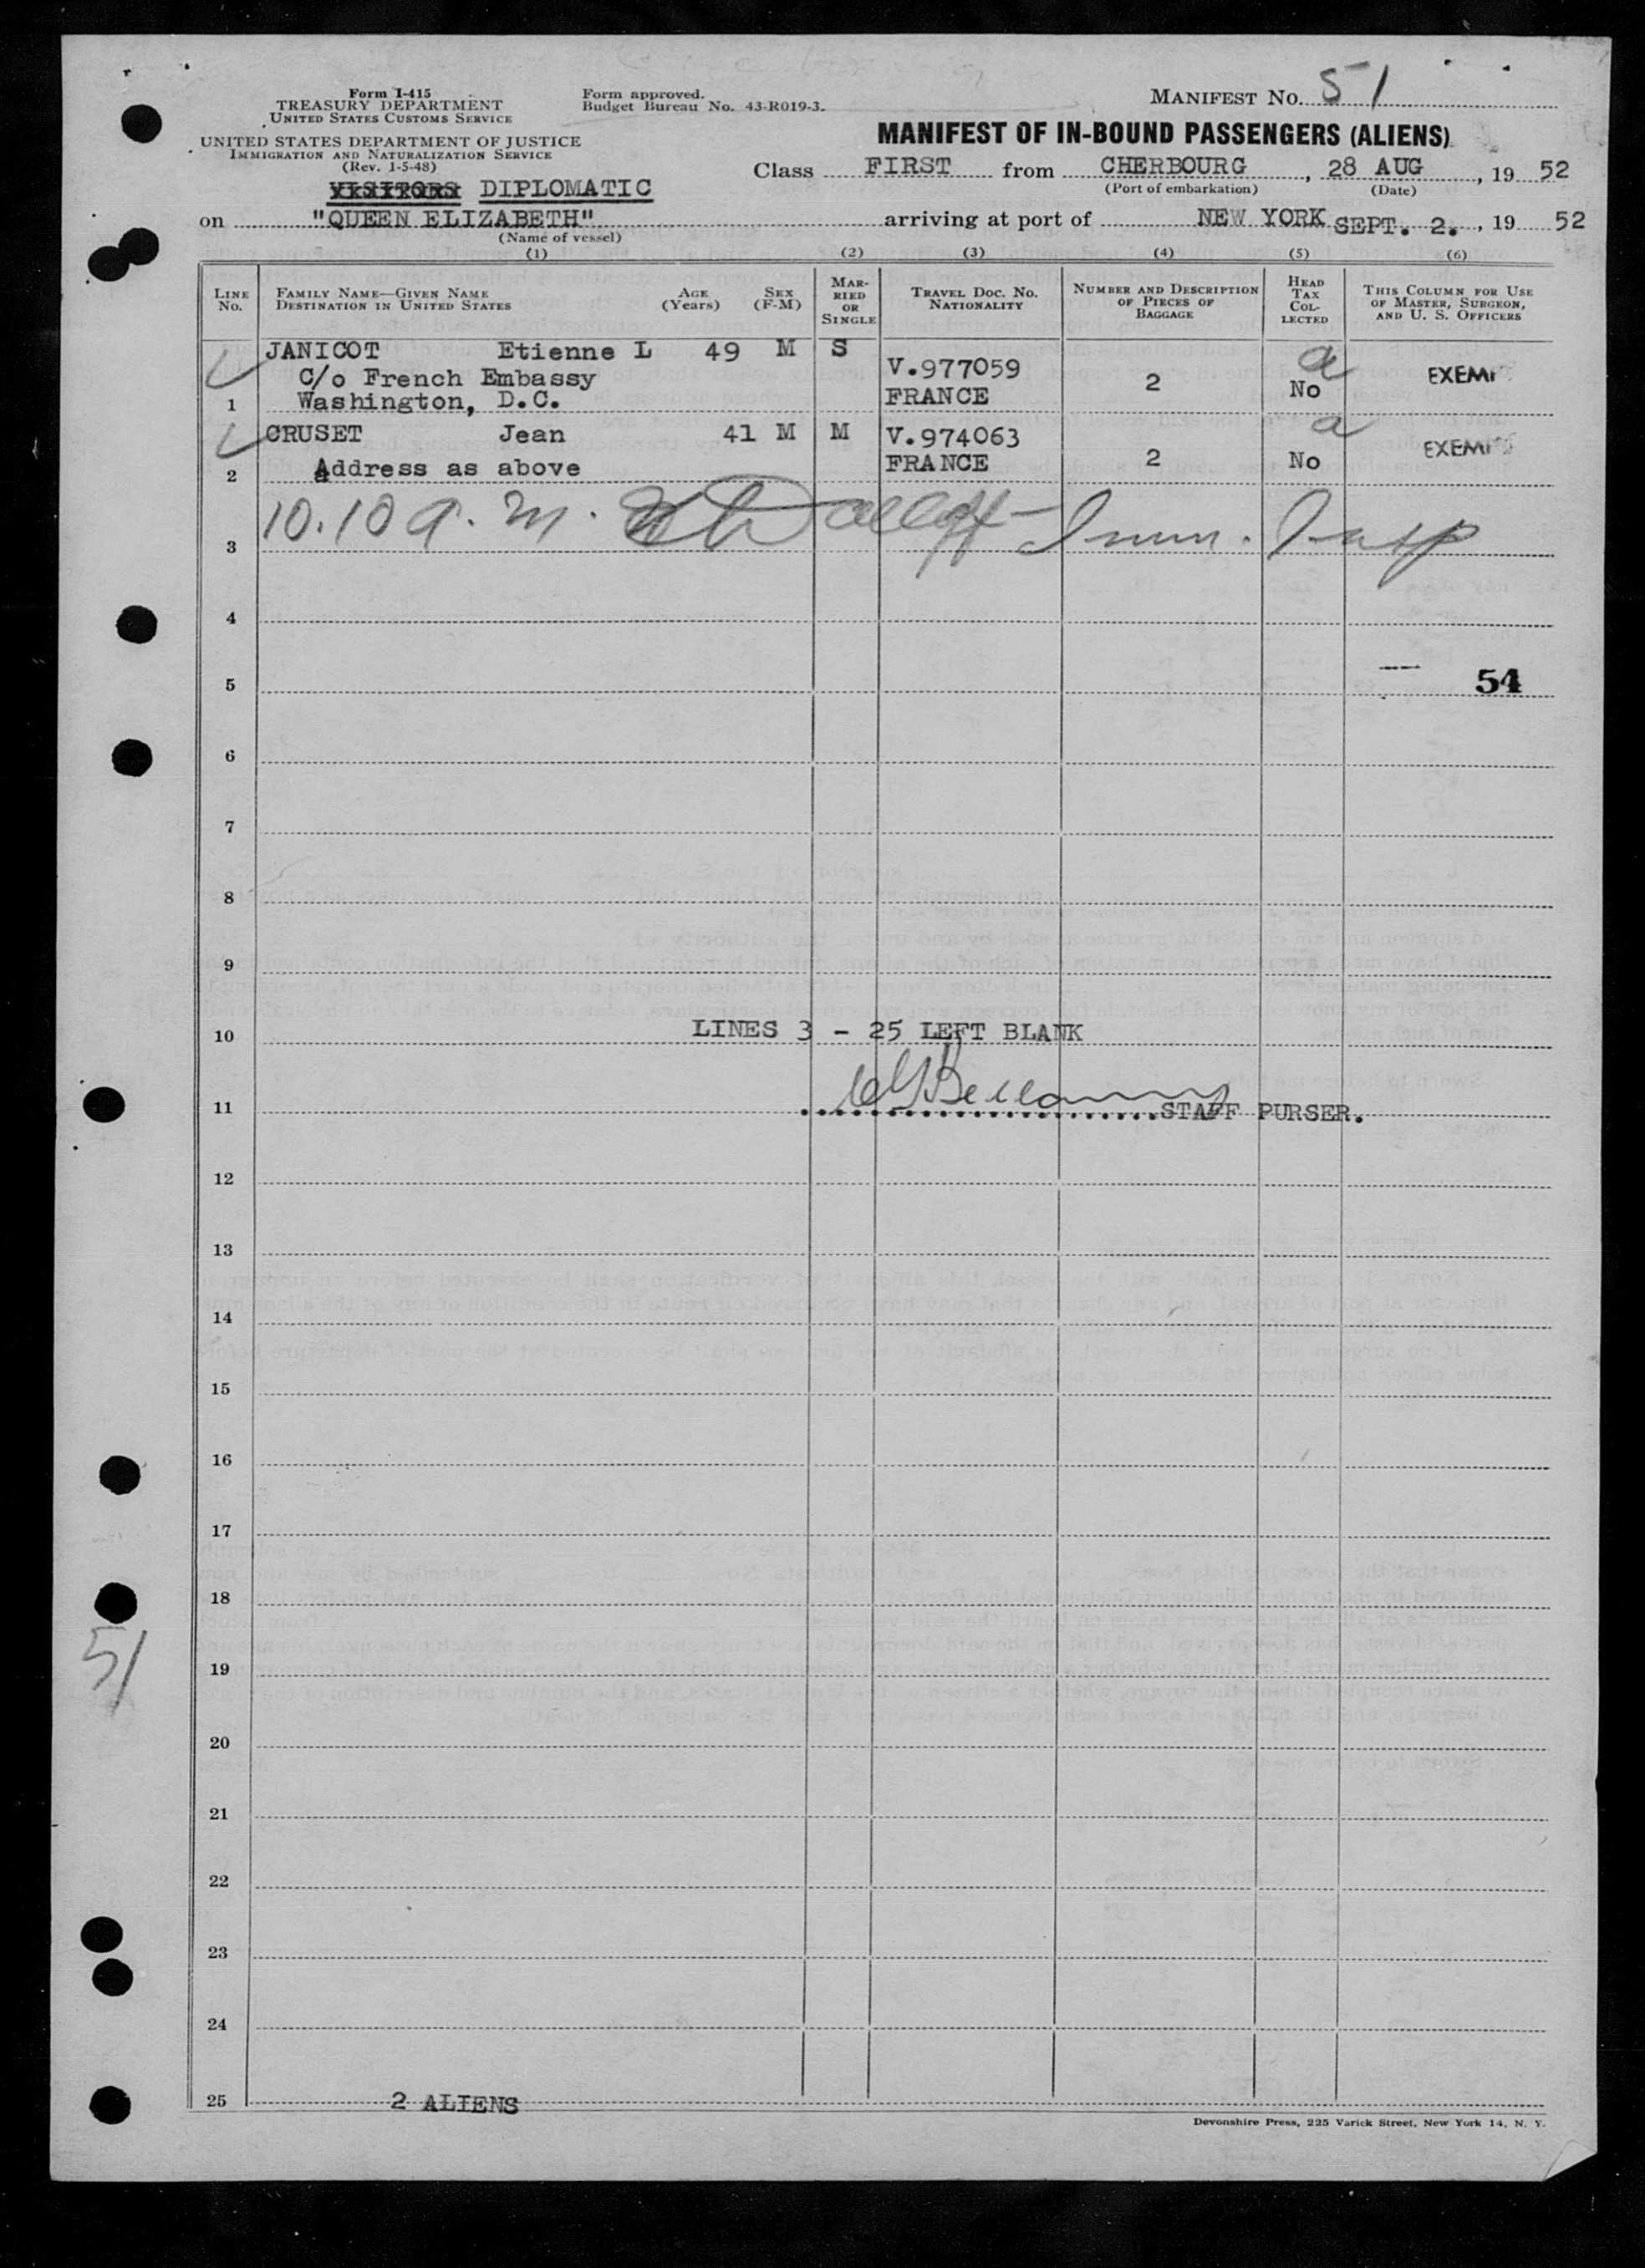 Form I-415
TREASURY DEPARTMENT
UNITED STATES CUSTOMS SERVICE
UNITED STATES DEPARTMENT OF JUSTICE
IMMIGRATION AND NATURALIZATION SERVICE
(Rev. 1-5-48)
Form approved.
Budget Bureau No. 43-R019-3.
MANIFEST NO. 51
MANIFEST OF IN-BOUND PASSENGERS (ALIENS)
VISITORS DIPLOMATIC
Class FIRST from CHERBOURG, 28 AUG, 1952
(Port of embarkation) (Date)
on "QUEEN ELIZABETH" arriving at port of NEW YORK SEPT. 2., 1952
(Name of vessel)
(1) (2) (3) (4) (5) (6)
LINE NO. FAMILY NAME—GIVEN NAME DESTINATION IN UNITED STATES AGE (Years) SEX (F-M) MARRIED OR SINGLE TRAVEL DOC. NO. NATIONALITY NUMBER AND DESCRIPTION OF PIECES OF BAGGAGE HEAD TAX COLLECTED THIS COLUMN FOR USE OF MASTER, SURGEON, AND U. S. OFFICERS
JANICOT Etienne L 49 M S a
C/o French Embassy V.977059 2 EXEMP
1 Washington, D.C. FRANCE No
CRUSET Jean 41 M M V.974063 a EXEMP
2 Address as above FRANCE 2 No
3 10.10 a.m. Imm. Insp
4
5 54
6
7
8
9
10 LINES 3 - 25 LEFT BLANK
11 STAFF PURSER.
12
13
14
15
16
17
18
51
19
20
21
22
23
24
25 2 ALIENS
Devonshire Press, 225 Varick Street, New York 14, N. Y.